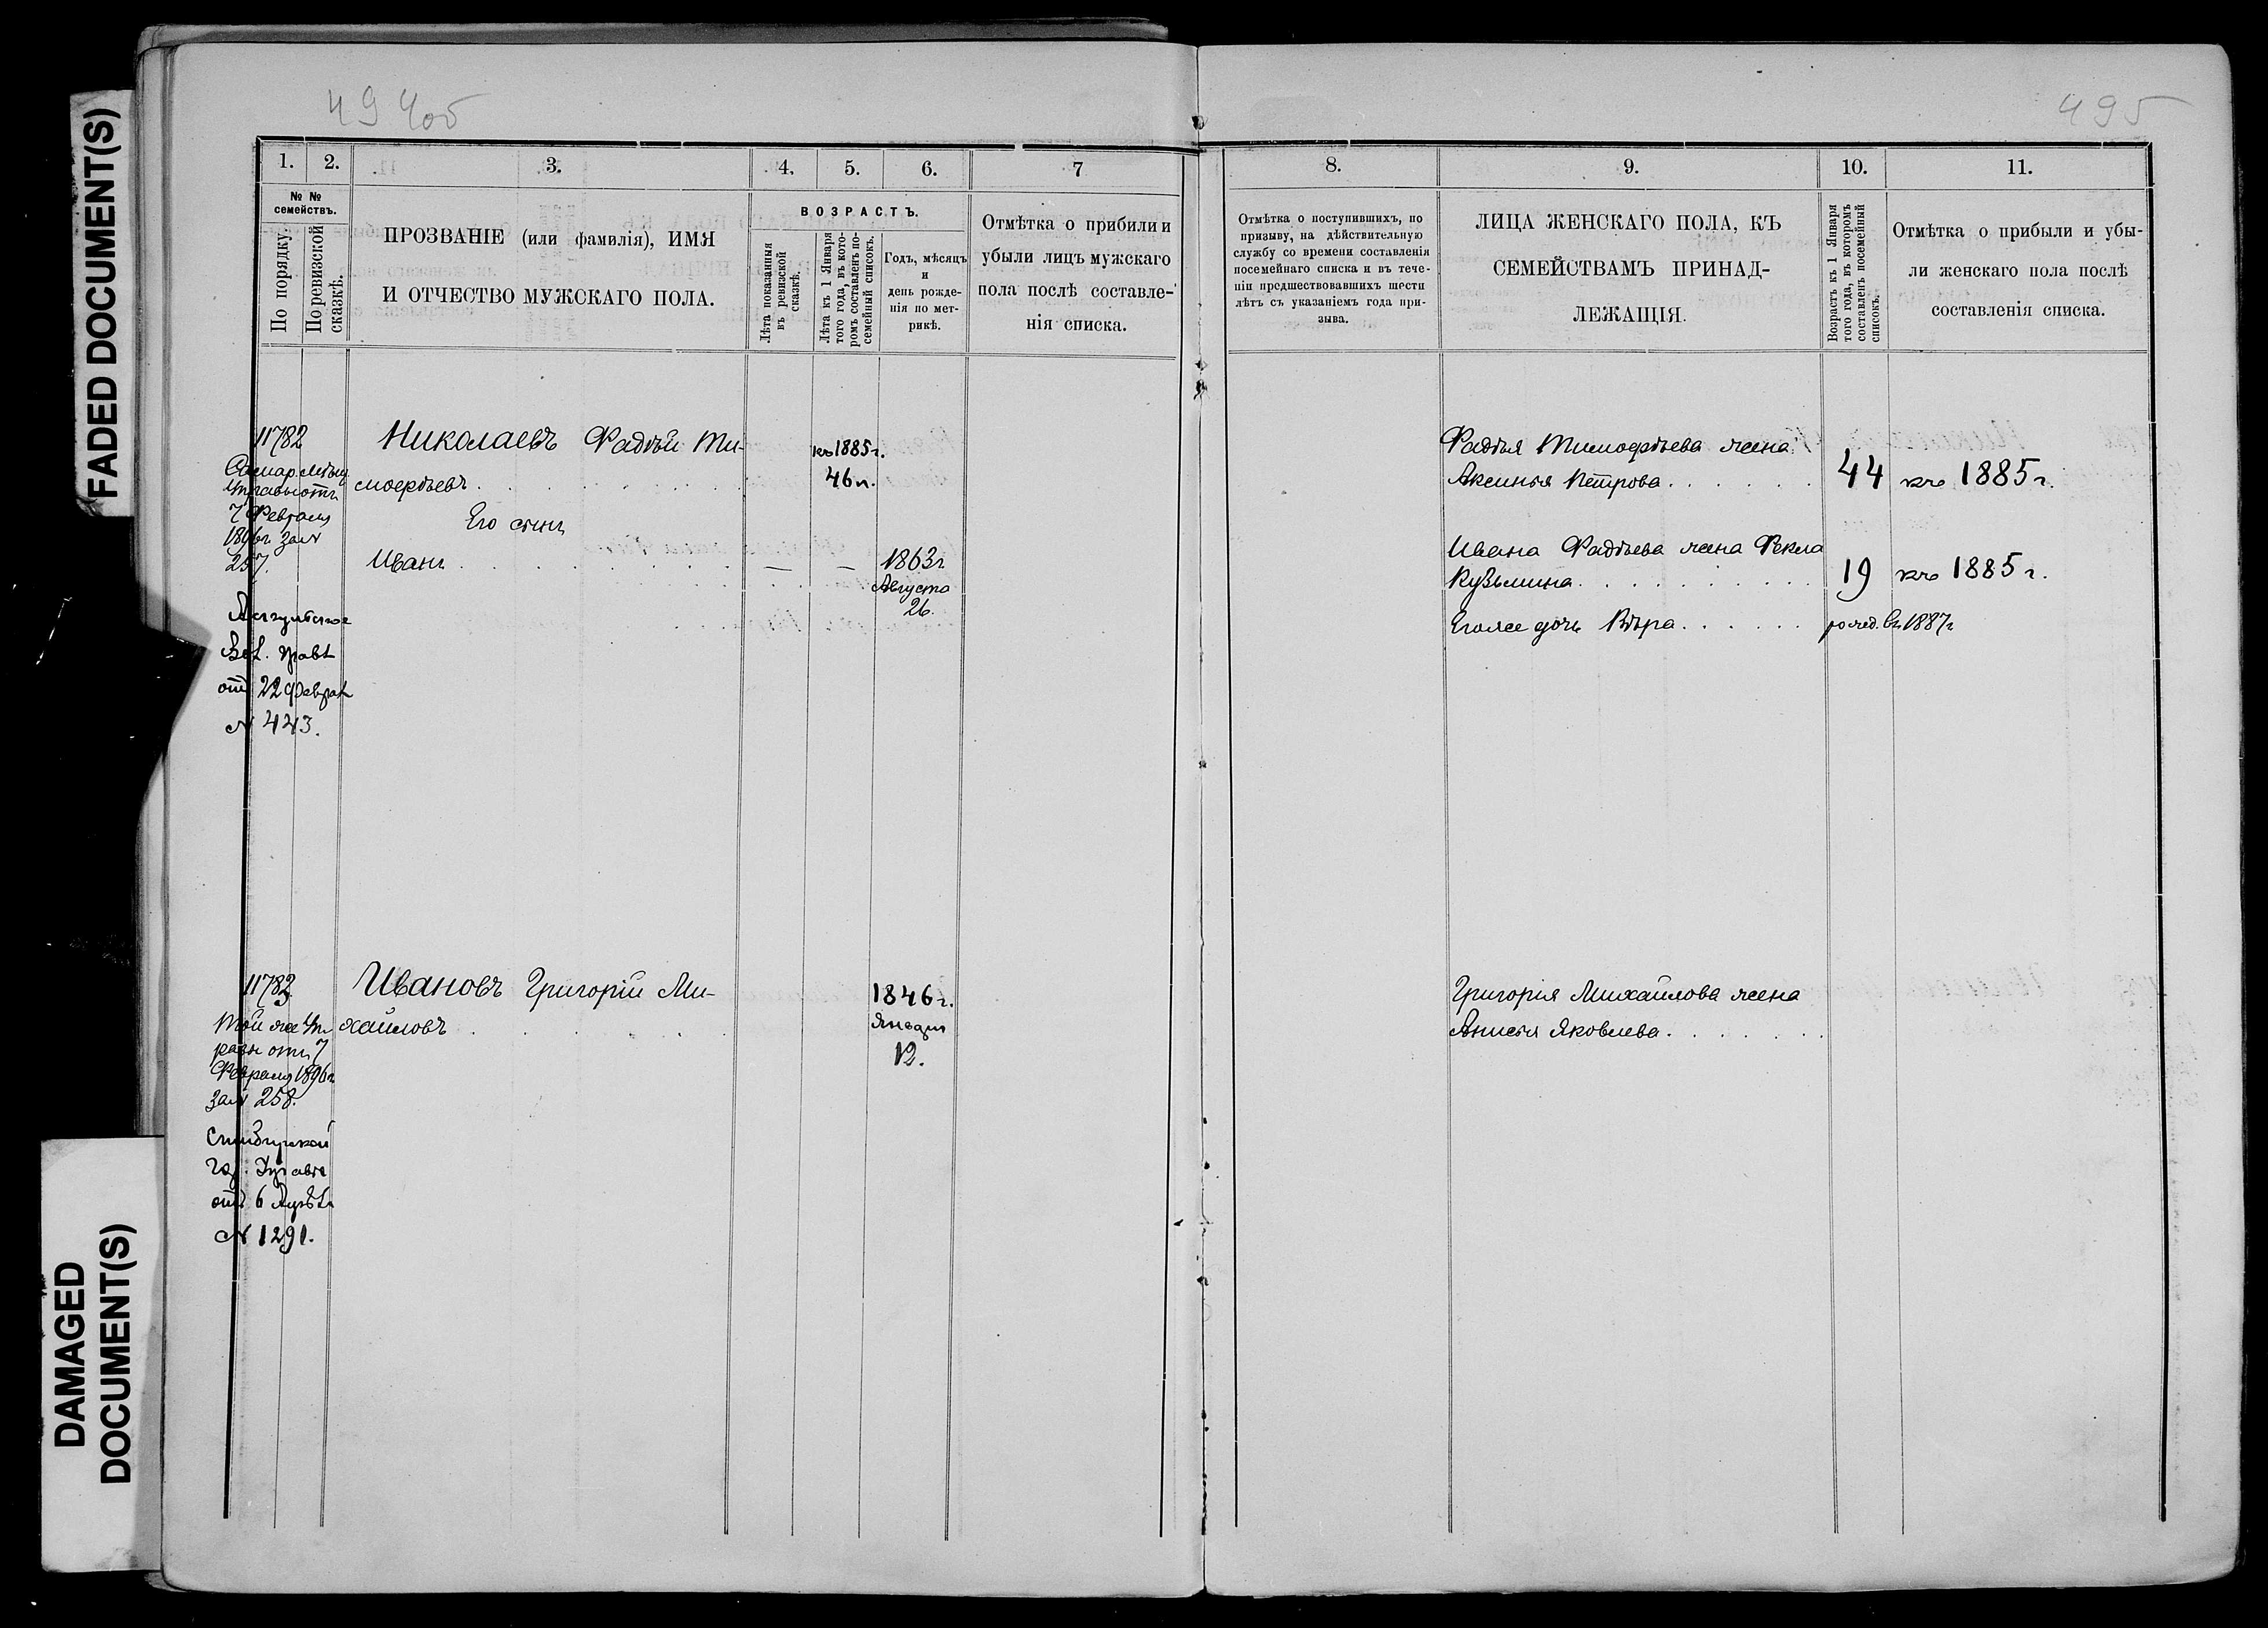 FADED DOCUMENT(S)
DAMAGED
DOCUMENT(S)
494об
495
1.
2.
3.
4.
5.
6.
7
№ №
семействъ.
По порядку.
По ревизской
сказкѣ.
ПРОЗВАНІЕ (или фамилія), ИМЯ
И ОТЧЕСТВО МУЖСКАГО ПОЛА.
ВОЗРАСТЪ.
Лѣта показанныя
въ ревизской
сказкѣ.
Лѣта къ 1 Января
того года, въ кото-
ромъ составленъ по-
семейный списокъ.
Годъ, мѣсяцъ
и
день рожде-
нія по мет-
рикѣ.
Отмѣтка о прибыли и
убыли лицъ мужскаго
пола послѣ составле-
нія списка.
11782
Самар. Мѣщ
Управы отъ
7 Февраля
1896г за №
257.
Вол. Правл
отъ 22 Феврал
№ 443.
Николаевъ Фадѣй Ти-
мофѣевъ
Его сынъ
Иванъ
къ 1885г.
46 л.
— —
1863г
Августа
26.
11783.
Той же Уп
равы отъ 7
Февраля 1896г
за № 258.
Симбирской
Гор. Управы
отъ 6
№ 1291.
Ивановъ Григорій Ми-
хайловъ
1846г.
Января
12.
8.
9.
10.
11.
Отмѣтка о поступившихъ, по
призыву, на дѣйствительную
службу со времени составленія
посемейнаго списка и въ тече-
ніи предшествовавшихъ шести
лѣтъ съ указаніемъ года при-
зыва.
ЛИЦА ЖЕНСКАГО ПОЛА, КЪ
СЕМЕЙСТВАМЪ ПРИНАД-
ЛЕЖАЩІЯ.
Возрастъ къ 1 Января
того года, въ которомъ
составленъ посемейный
списокъ.
Отмѣтка о прибыли и убы-
ли женскаго пола послѣ
составленія списка.
Фадѣя Тимофѣева жена
Аксинья Петрова
44 къ 1885г.
Ивана Фадѣева жена Фекла
Кузьмина
19 къ 1885г.
Его же дочь Вѣра
рожд. въ 1887г
Григорія Михайлова жена
Анисья Яковлева